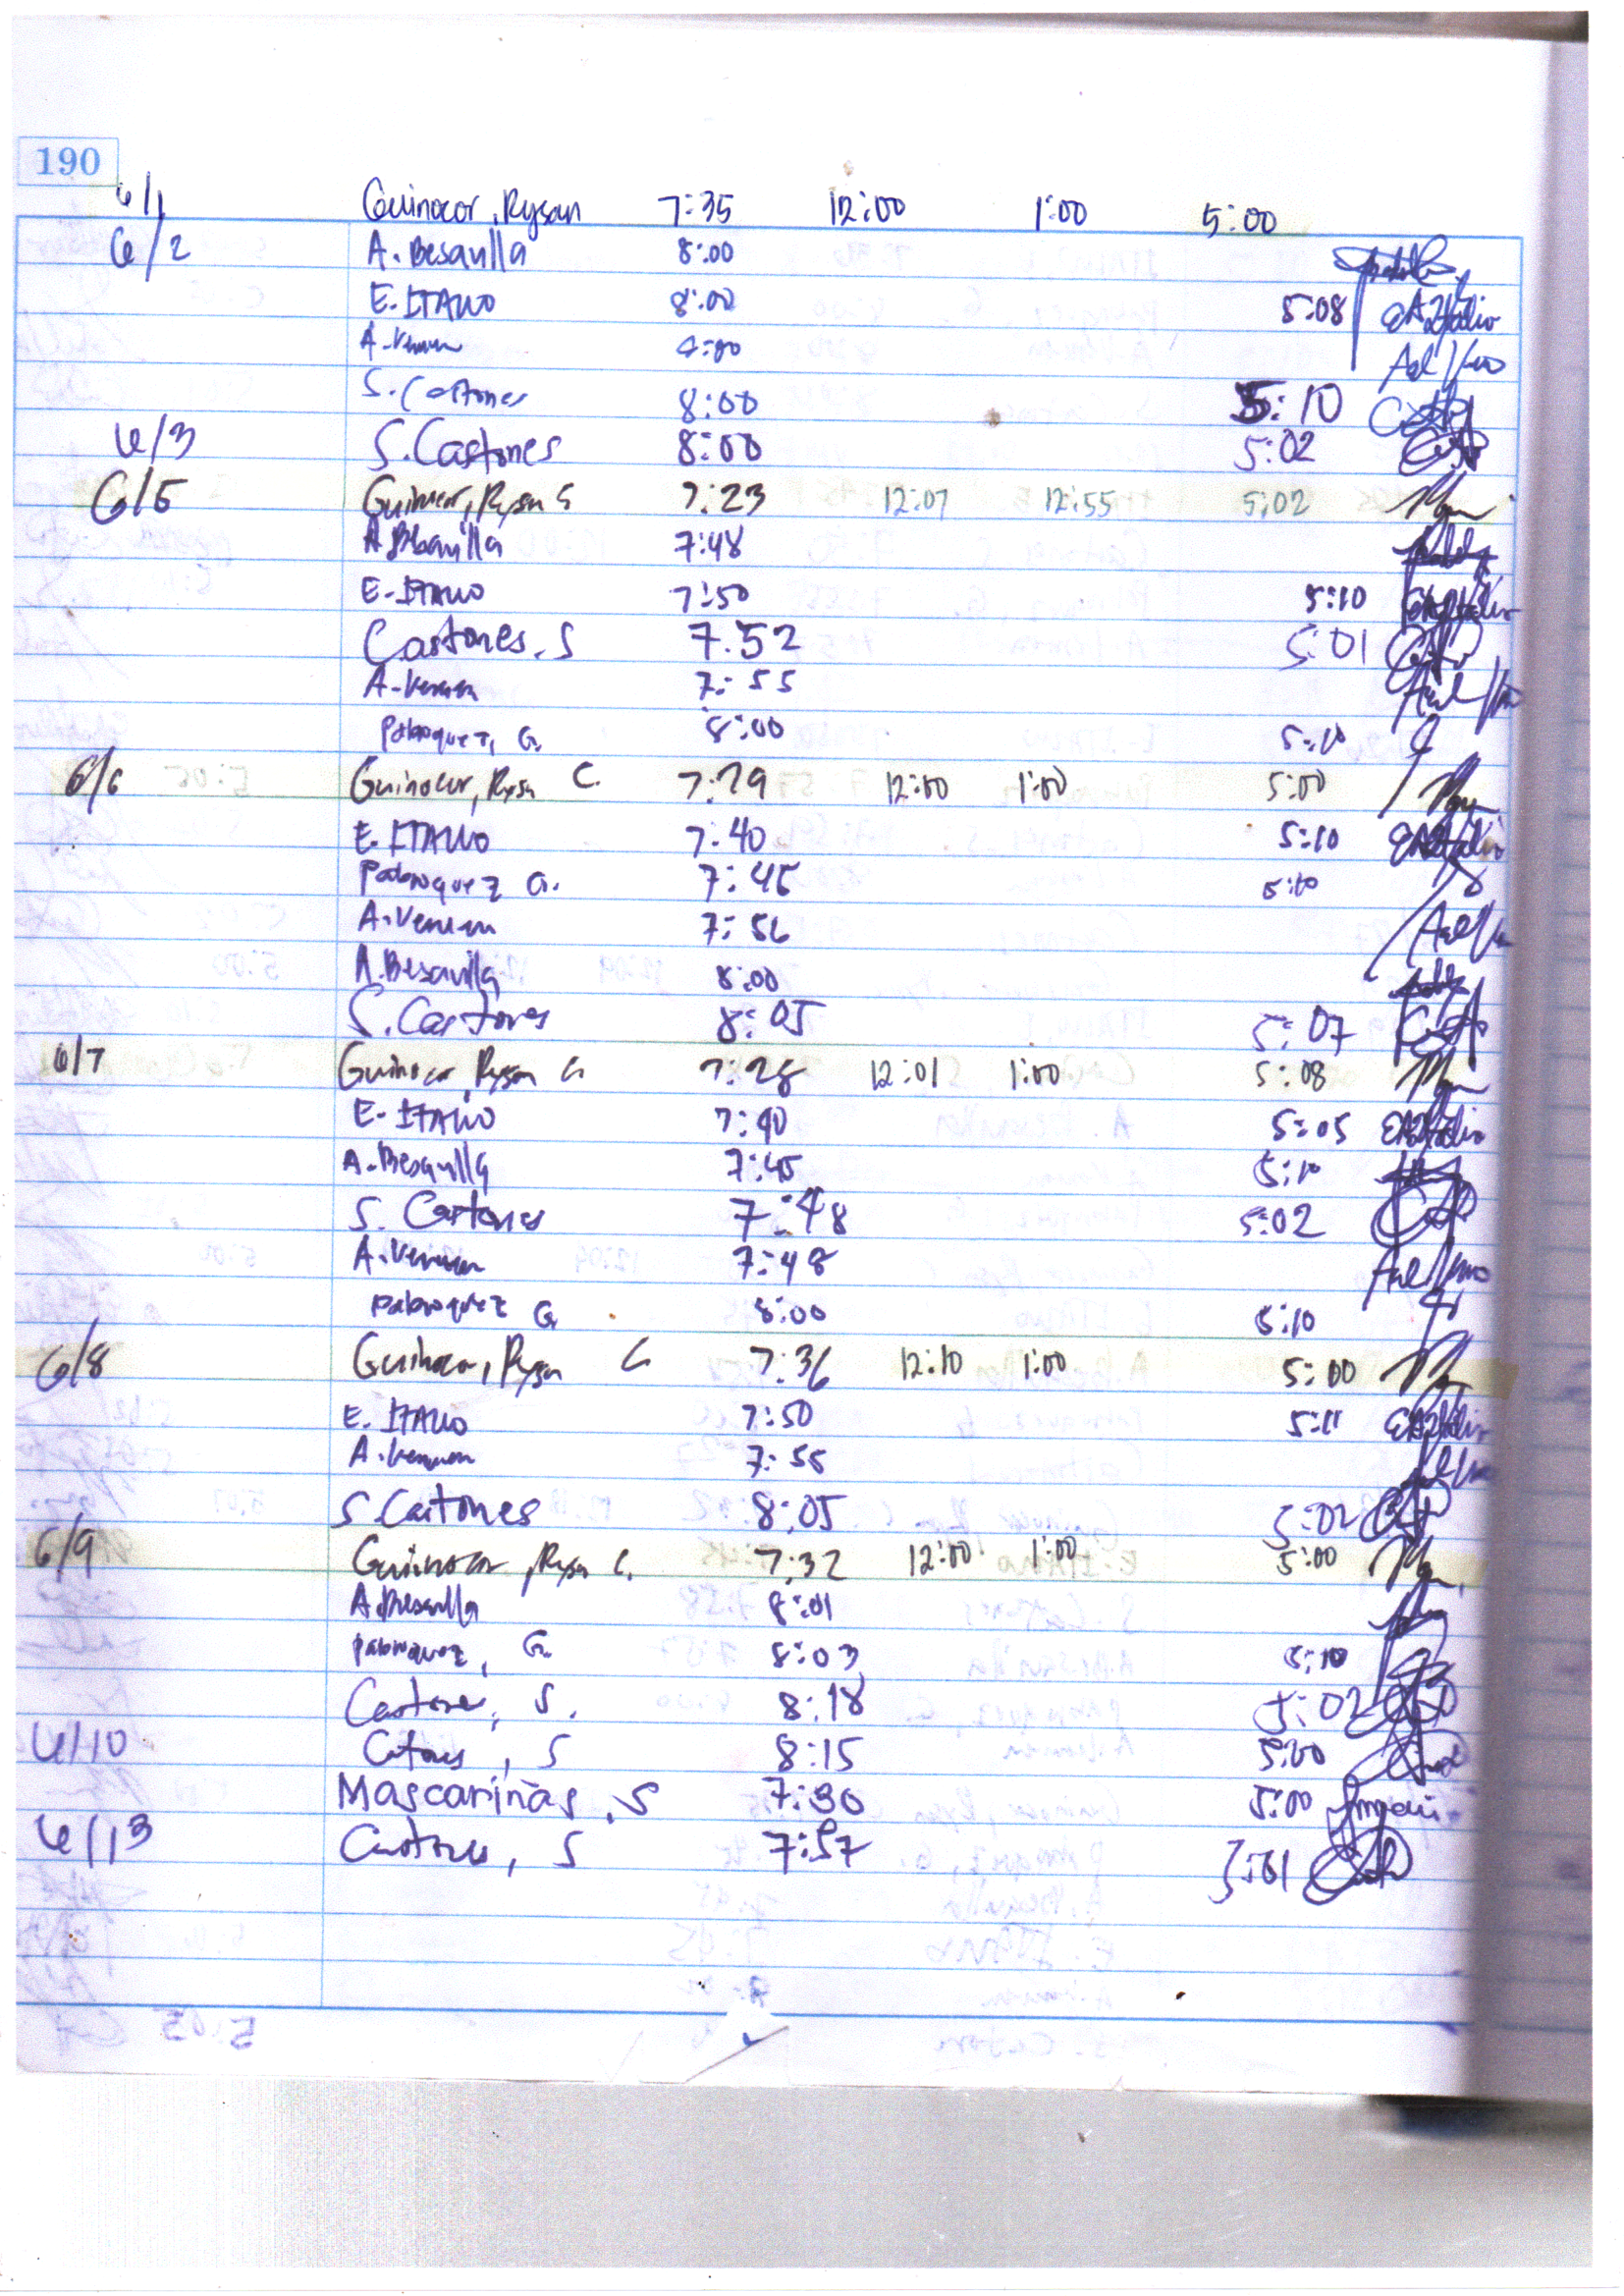 190
6/1 Guinocor, Rysan 7:35 12:00 1:00 5:00
6/2 A. Besavilla 8:00
E. ITALIO 8:00 5:08
A. Veman 8:00
S. Castones 8:00 5:10
6/3 S. Castones 8:00 5:02
6/5 Guinocor, Rysan G 7:23 12:07 12:55 5:02
A. Besavilla 7:48
E. ITALIO 7:50 5:10
Castones, S 7:52 5:01
A. Veman 7:55
Pabroquez, G. 8:00 5:10
6/6 Guinocor, Rysan C. 7:29 12:00 1:00 5:00
E. ITALIO 7:40 5:10
Pabroquez G. 7:45 5:10
A. Veman 7:56
A. Besavilla 8:00
S. Castones 8:05 5:07
6/7 Guinocor, Rysan G 7:28 12:01 1:00 5:08
E. ITALIO 7:40 5:05
A. Besavilla 7:45 5:10
S. Castones 7:48 5:02
A. Veman 7:48
Pabroquez G. 8:00 5:10
6/8 Guinocor, Rysan G 7:36 12:10 1:00 5:00
E. ITALIO 7:50 5:11
A. Veman 7:55
S. Castones 8:05 5:02
6/9 Guinocor, Rysan G. 7:32 12:00 1:00 5:00
A. Besavilla 8:01
Pabroquez, G. 8:03 5:10
Castones, S. 8:18 5:02
6/10 Castones, S 8:15 5:00
Mascariñas, S 7:30 5:00
6/13 Castones, S 7:57 5:01